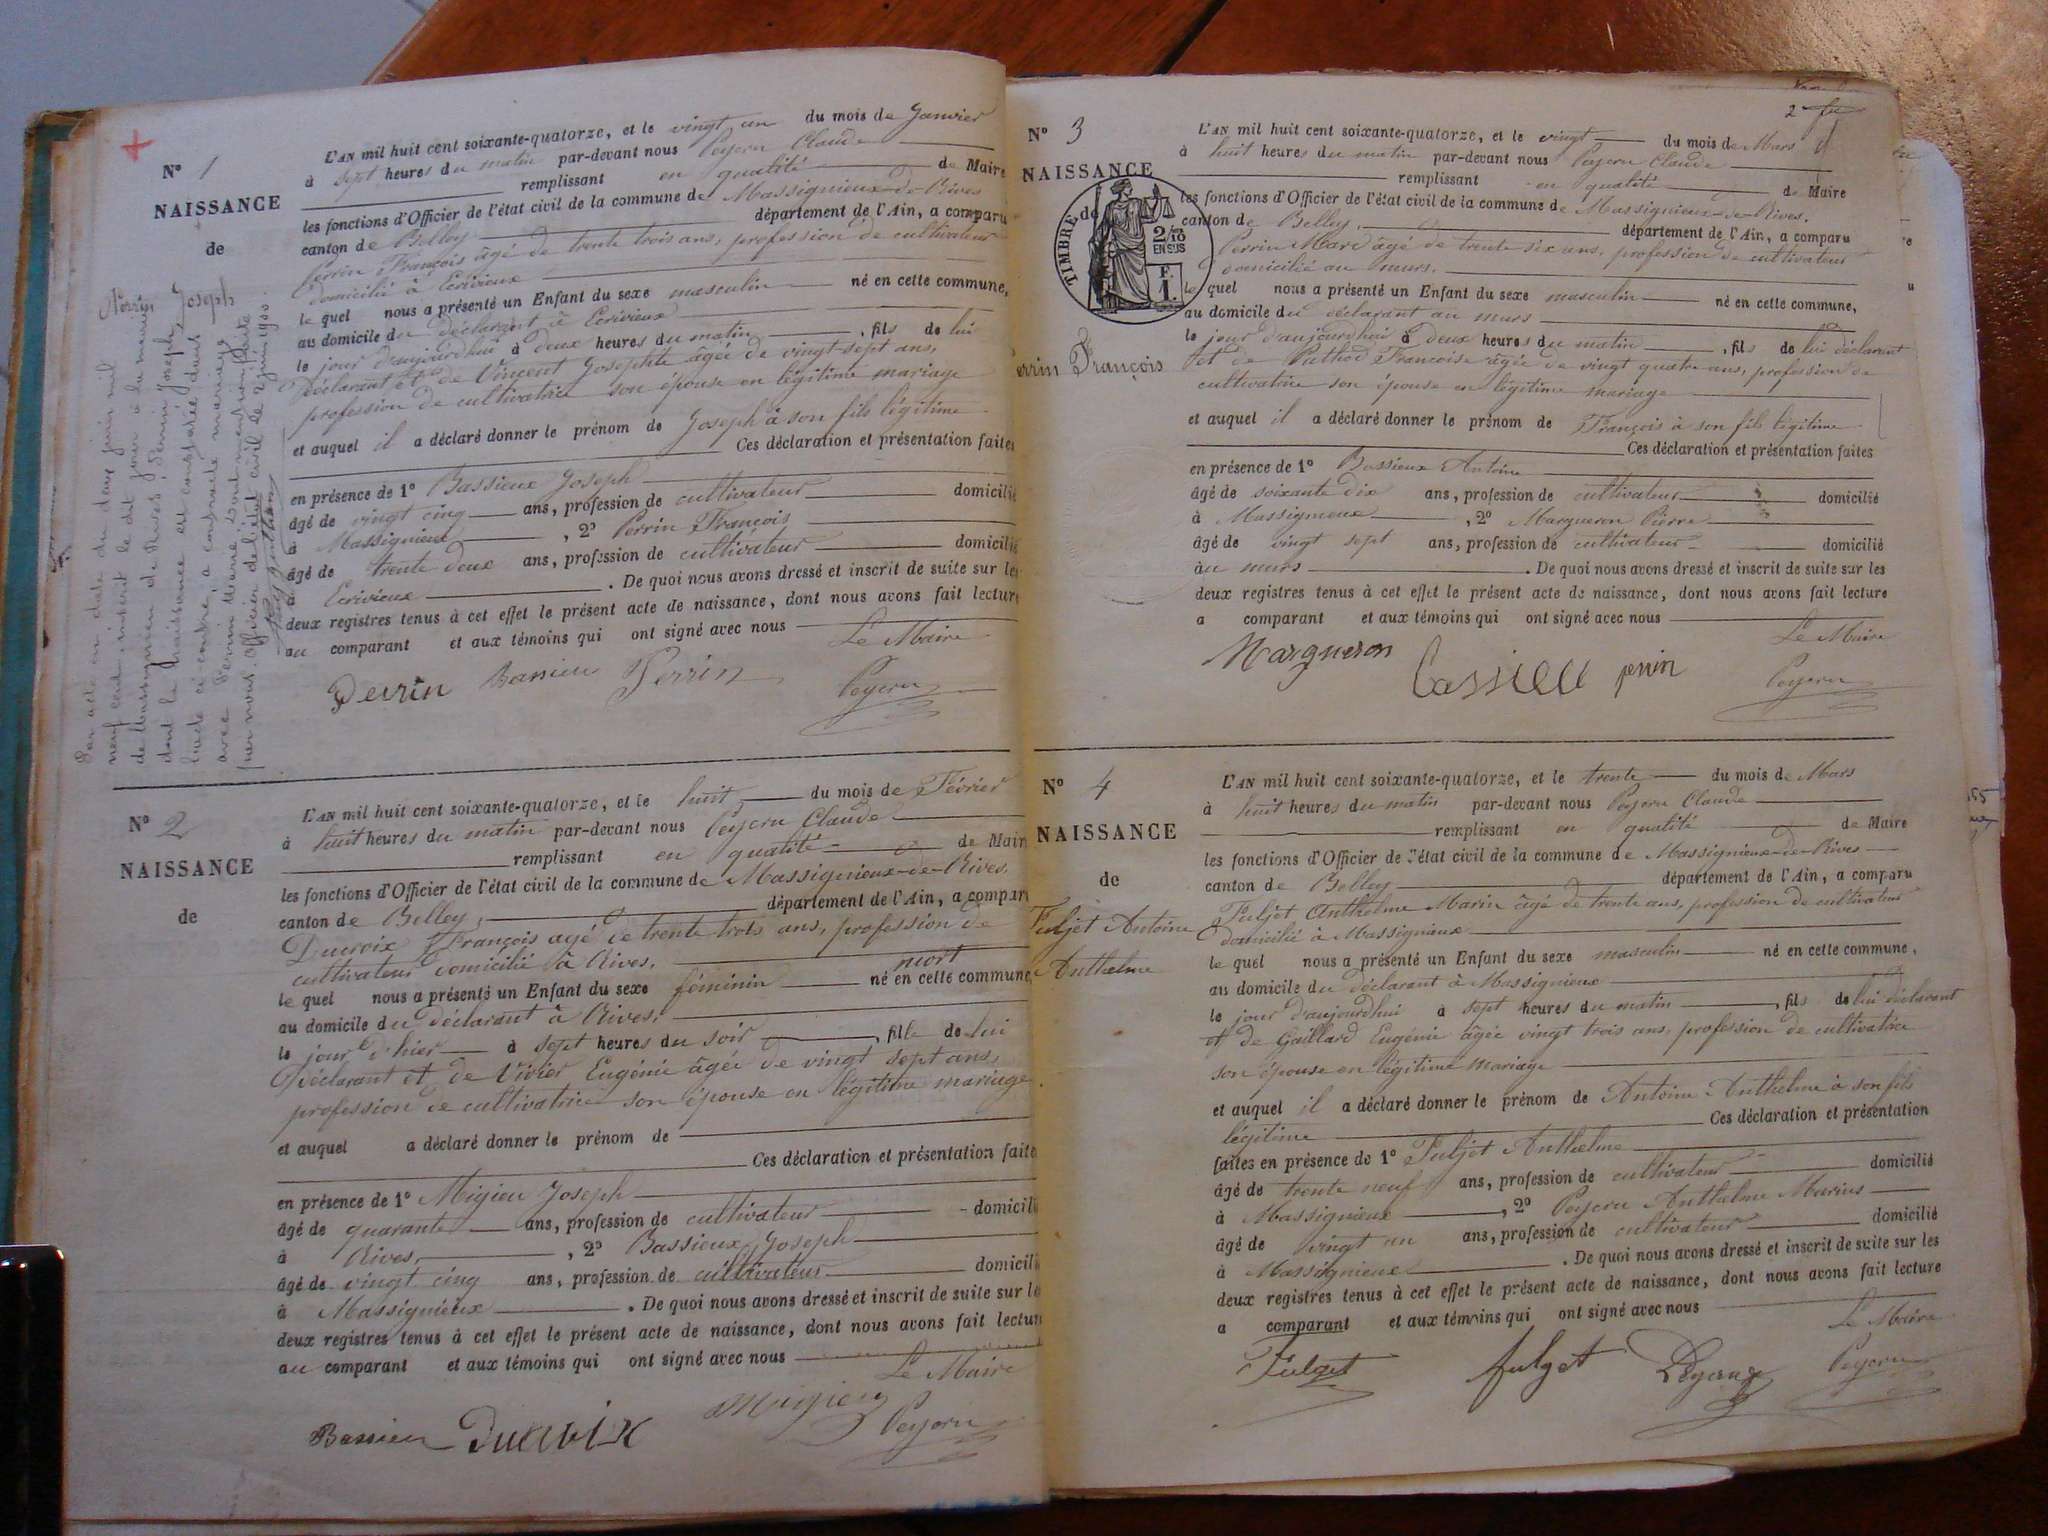 Nº 1
NAISSANCE
de
Perrin Joseph
Par acte en date du deux juin mil
neuf cent, inscrit le dit jour à la mairie
de Massignieu de Rives, Perrin Joseph,
dont la naissance est constatée dans
l'acte ci contre, a contracté mariage
avec Perrin Marie
par nous officier de l'état civil le 2 juin 1900.
L'AN mil huit cent soixante-quatorze, et le vingt un du mois de Janvier
à sept heures du matin par-devant nous Peysru Claude
remplissant en qualité de Maire
les fonctions d'Officier de l'état civil de la commune de Massignieux-de-Rives
canton de Belley département de l'Ain, a comparu
Perrin François âgé de trente trois ans, profession de cultivateur
domicilié à Ecrivieux
le quel nous a présenté un Enfant du sexe masculin né en cette commune,
au domicile du déclarant à Ecrivieux
le jour d'aujourdhui à deux heures du matin, fils de lui
déclarant et de Vincent Josephte âgée de vingt-sept ans,
profession de cultivatrice son épouse en légitime mariage
et auquel il a déclaré donner le prénom de Joseph à son fils légitime
Ces déclaration et présentation faites
en présence de 1º Bassieux Joseph
âgé de vingt cinq ans, profession de cultivateur domicilié
à Massignieux, 2º Perrin François
âgé de trente deux ans, profession de cultivateur domicilié
à Ecrivieux. De quoi nous avons dressé et inscrit de suite sur les
deux registres tenus à cet effet le présent acte de naissance, dont nous avons fait lecture
au comparant et aux témoins qui ont signé avec nous
Le Maire
Perrin Bassieu Perrin Peysru
Nº 2
NAISSANCE
de
L'AN mil huit cent soixante-quatorze, et le huit du mois de Février
à huit heures du matin par-devant nous Peysru Claude
remplissant en qualité de Maire
les fonctions d'Officier de l'état civil de la commune de Massignieux-de-Rives,
canton de Belley, département de l'Ain, a comparu
Ducroix François âgé de trente trois ans, profession de
cultivateur domicilié à Rives,
mort
le quel nous a présenté un Enfant du sexe féminin né en cette commune,
au domicile du déclarant à Rives,
le jour d'hier à sept heures du soir, fille de lui
déclarant et de Vivier Eugénie âgée de vingt sept ans,
profession de cultivatrice son épouse en légitime mariage
et auquel a déclaré donner le prénom de
Ces déclaration et présentation faites
en présence de 1º Migieu Joseph
âgé de quarante ans, profession de cultivateur domicilié
à Rives, 2º Bassieux Joseph
âgé de vingt cinq ans, profession de cultivateur domicilié
à Massignieux. De quoi nous avons dressé et inscrit de suite sur les
deux registres tenus à cet effet le présent acte de naissance, dont nous avons fait lecture
au comparant et aux témoins qui ont signé avec nous
Le Maire
Bassieu Ducroix Migieu Peysru
2
Nº 3
NAISSANCE
de
TIMBRE
2/10
EN SUS
F.
1.
Perrin François
L'AN mil huit cent soixante-quatorze, et le vingt du mois de Mars
à huit heures du matin par-devant nous Peysru Claude
remplissant en qualité de Maire
les fonctions d'Officier de l'état civil de la commune de Massignieux-de-Rives.
canton de Belley, département de l'Ain, a comparu
Perrin Marc âgé de trente six ans, profession de cultivateur
domicilié au murs,
le quel nous a présenté un Enfant du sexe masculin né en cette commune,
au domicile du déclarant au murs
le jour d'aujourdhui à deux heures du matin, fils de lui déclarant
et de Puthod Françoise âgée de vingt quatre ans, profession de
cultivatrice son épouse en légitime mariage
et auquel il a déclaré donner le prénom de François à son fils légitime
Ces déclaration et présentation faites
en présence de 1º Bassieux Antoine
âgé de soixante dix ans, profession de cultivateur domicilié
à Massignieux, 2º Margueron Pierre
âgé de vingt sept ans, profession de cultivateur domicilié
au murs. De quoi nous avons dressé et inscrit de suite sur les
deux registres tenus à cet effet le présent acte de naissance, dont nous avons fait lecture
a comparant et aux témoins qui ont signé avec nous
Le Maire
Margueron Bassieu perrin Peysru
Nº 4
NAISSANCE
de
Fuljet Antoine
Anthelme
L'AN mil huit cent soixante-quatorze, et le trente du mois de Mars
à huit heures du matin par-devant nous Peysru Claude
remplissant en qualité de Maire
les fonctions d'Officier de l'état civil de la commune de Massignieux-de-Rives
canton de Belley département de l'Ain, a comparu
Fuljet Anthelme Marin âgé de trente ans, profession de cultivateur
domicilié à Massignieux
le quel nous a présenté un Enfant du sexe masculin né en cette commune,
au domicile du déclarant à Massignieux
le jour d'aujourdhui à sept heures du matin, fils de lui déclarant
et de Gaillard Eugénie âgée vingt trois ans, profession de cultivatrice
son épouse en légitime mariage
et auquel il a déclaré donner le prénom de Antoine Anthelme à son fils
légitime Ces déclaration et présentation
faites en présence de 1º Fuljet Anthelme
âgé de trente neuf ans, profession de cultivateur domicilié
à Massignieux, 2º Peysru Anthelme Marius
âgé de vingt un ans, profession de cultivateur domicilié
à Massignieux. De quoi nous avons dressé et inscrit de suite sur les
deux registres tenus à cet effet le présent acte de naissance, dont nous avons fait lecture
a comparant et aux témoins qui ont signé avec nous
Le Maire
Fulget fulget Peysru